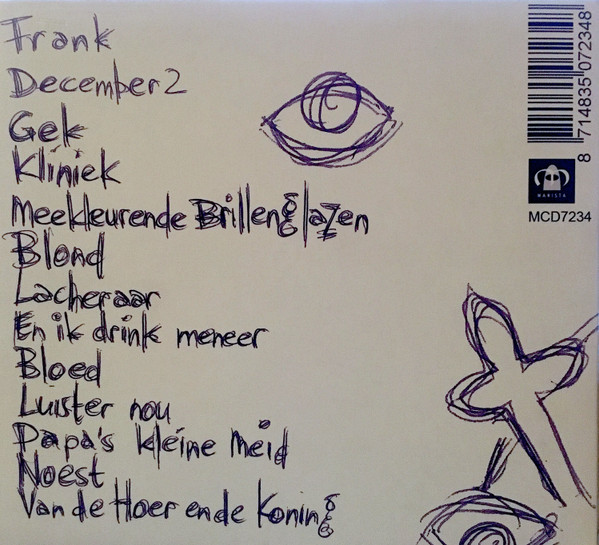 Frank
December 2
Gek
Kliniek
Meekleurende Brillenglazen
Blond
Lacheraar
En ik drink meneer
Bloed
Luister nou
Papa's kleine meid
Noest
Van de Hoer en de Koning
8 714835 072348
MARISTA
MCD7234